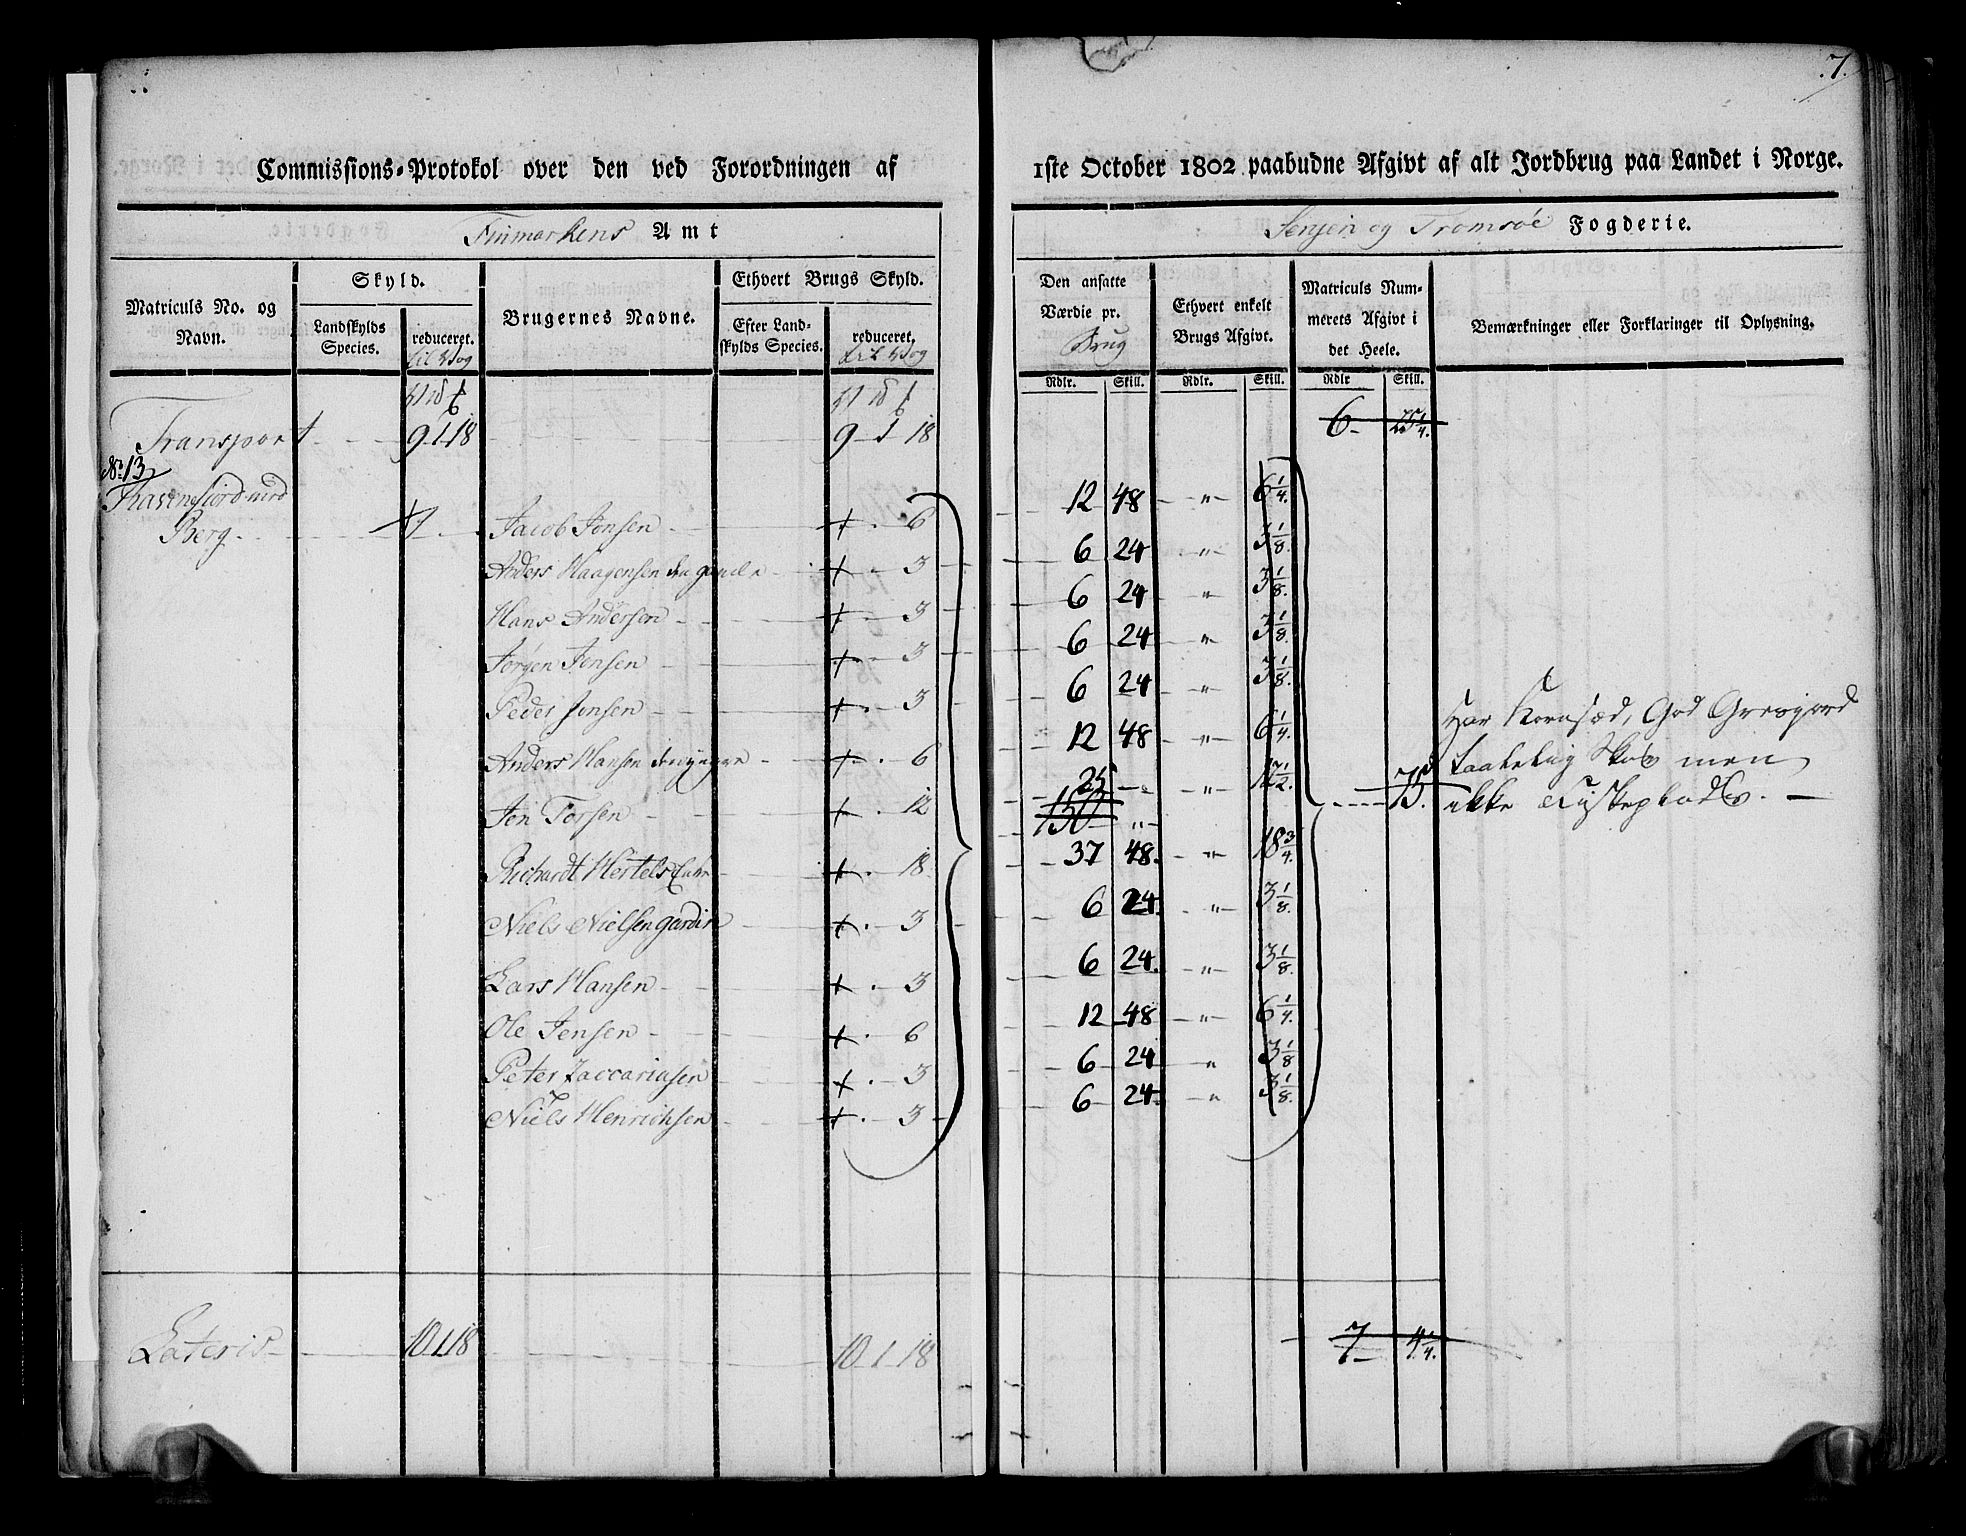 7.
Commissions-Protokol over den ved Forordningen af 1ste October 1802 paabudne Afgivt af alt Jordbrug paa Landet i Norge.
Finmarkens Amt
Senjen og Tromsöe Fogderie.
Matriculs No. og Navn.
Skyld.
Landskylds Species.
reduceret. til Wog
Brugernes Navne.
Ethvert Brugs Skyld.
Efter Landskylds Species.
reduceret. til Wog
Den ansatte Værdie pr. Brug
Ethvert enkelt Brugs Afgivt.
Matriculs Nummerets Afgivt i det Heele.
Bemærkninger eller Forklaringer til Oplysning.
Rdlr. Skill. Rdlr. Skill. Rdlr Skill.
Transport 9 1 18 9 1 18 6 25 1/4.
No. 13
Berg 1 Jacob Jonsen + 6 12 48 " 6 1/4.
Anders Haagensen den gamle + 3 6 24 " 3 1/8.
Hans Andersen + 3 6 24 " 3 1/8.
Jörgen Jensen + 3 6 24 " 3 1/8.
Peder Jonsen + 3 6 24 " 3 1/8.
Anders Hansen den yngre + 6 12 48 " 6 1/4.
Jon Torsen + 12 25 " 12 1/2. 75.
150 "
Richardt Hertels + 18 37 48. " 18 3/4.
Niels Nielsen + 3 6 24. " 3 1/8.
Lars Hansen + 3 6 24. " 3 1/8.
Ole Jensen + 6 12 48 " 6 1/4.
Peter Zaccariasen + 3 6 24 " 3 1/8.
Niels Henrichsen + 3 6 24 " 3 1/8.
Har Kornsæd, God
Skov men
ikke
Lateris 10 1 18 10 1 18 7 4 1/4.